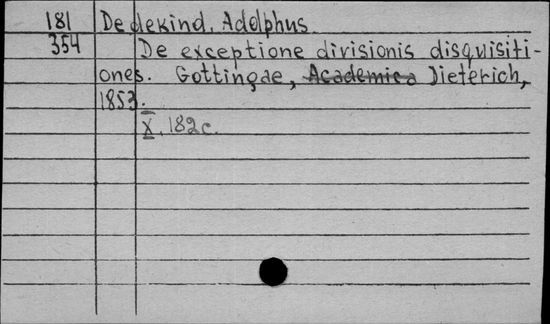 181 Dedekind, Adolphus.
354 De exceptione divisionis disquisiti-
ones. Gottingae, Academica Dieterich,
1853.
X, 182c.